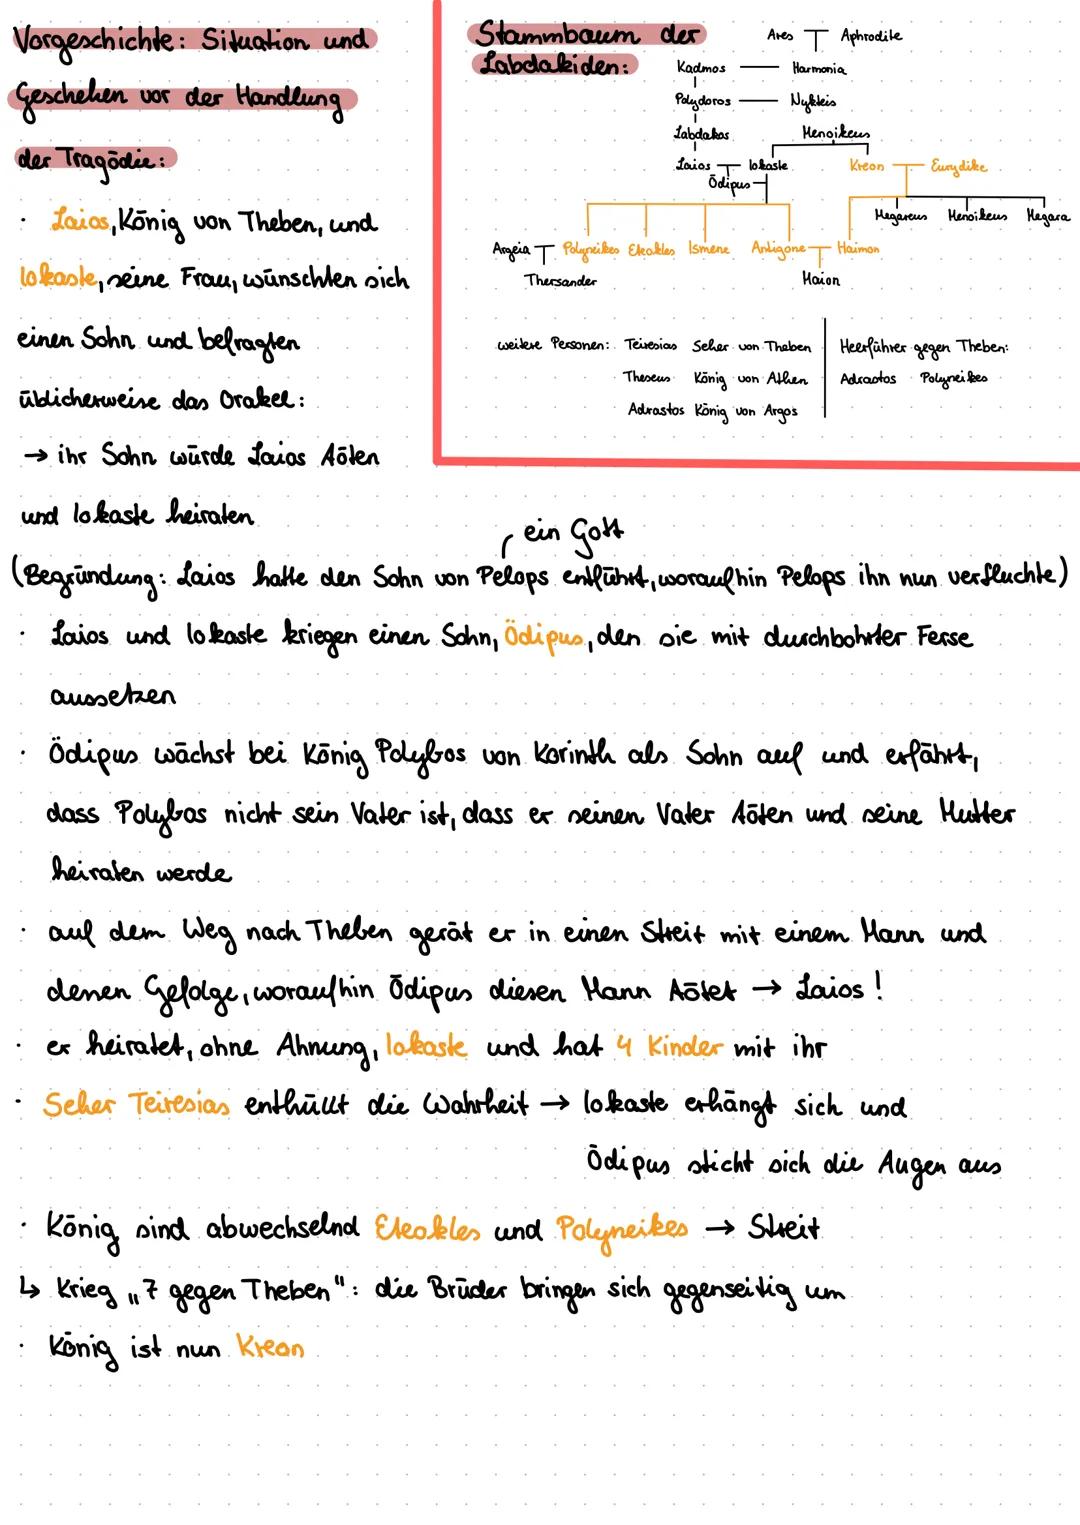 Vorgeschichte: Situation und
Geschehen vor der Handlung
der Tragödie:
· Laios, König von Theben, und
Iokaste, seine Frau, wünschten sich
einen Sohn und befragten
üblicherweise das Orakel:
→ ihr Sohn würde Laios töten
und Iokaste heiraten
Stammbaum der
Labdakiden:
Ares Aphrodite
Kadmos Harmonia
Polydoros Nykteis
Labdakos Menoikeus
Laios Iokaste Kreon Eurydike
Ödipus
Megareus Menoikeus Megara
Argeia Polyneikes Eteokles Ismene Antigone Haimon
Thersander Maion
weitere Personen: Teiresias Seher von Theben
Theseus König von Athen
Adrastos König von Argos
Heerführer gegen Theben:
Adrastos Polyneikes
ein Gott
(Begründung: Laios hatte den Sohn von Pelops entführt, woraufhin Pelops ihn nun verfluchte)
· Laios und Iokaste kriegen einen Sohn, Ödipus, den sie mit durchbohrter Ferse
aussetzen
· Ödipus wächst bei König Polybos von Korinth als Sohn auf und erfährt,
dass Polybos nicht sein Vater ist, dass er seinen Vater töten und seine Mutter
heiraten werde
· auf dem Weg nach Theben gerät er in einen Streit mit einem Mann und
dessen Gefolge, woraufhin Ödipus diesen Mann tötet → Laios!
· er heiratet, ohne Ahnung, Iokaste und hat 4 Kinder mit ihr
· Seher Teiresias enthüllt die Wahrheit → Iokaste erhängt sich und
Ödipus sticht sich die Augen aus
· König sind abwechselnd Eteokles und Polyneikes → Streit
↳ Krieg „7 gegen Theben": die Brüder bringen sich gegenseitig um
· König ist nun Kreon